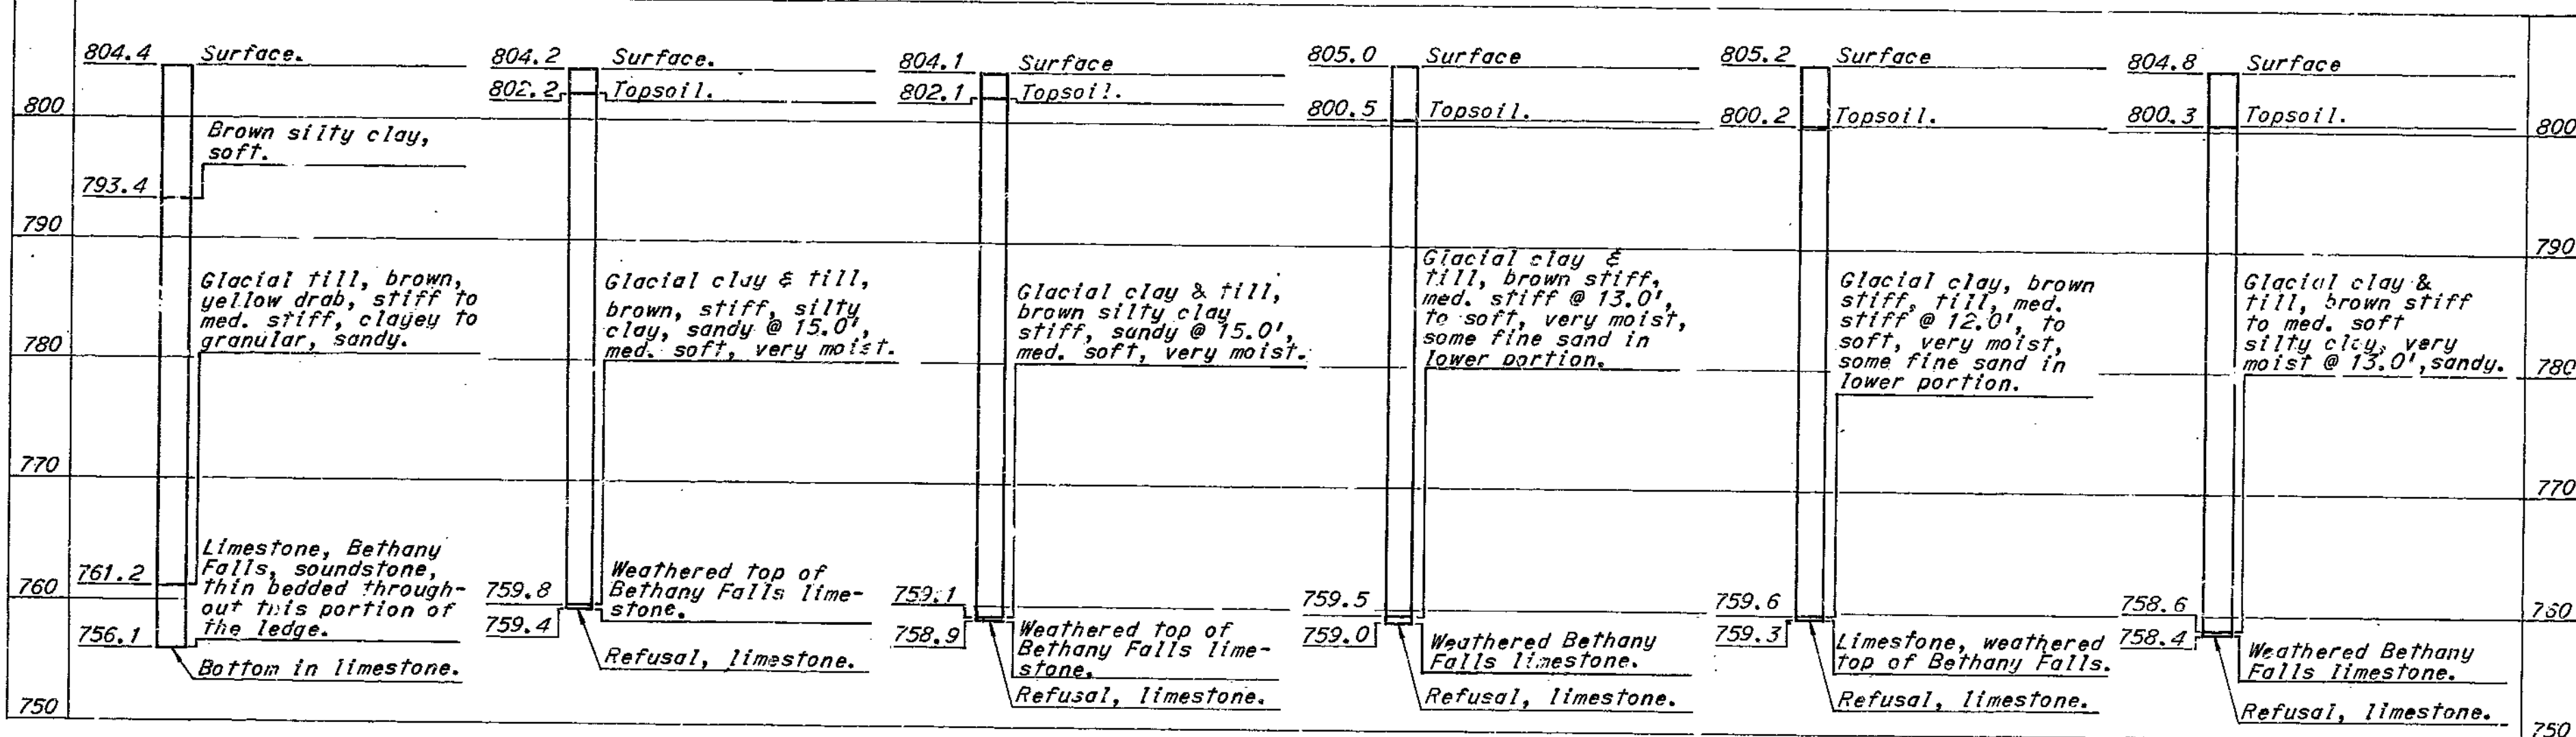 804.4 Surface.
800
Brown silty clay,
soft.
793.4
790
Glacial till, brown,
yellow drab, stiff to
med. stiff, clayey to
granular, sandy.
780
770
Limestone, Bethany
Falls, soundstone,
thin bedded through-
out this portion of
the ledge.
761.2
760
756.1
Bottom in limestone.
750
804.2 Surface.
802.2 Topsoil.
Glacial clay & till,
brown, stiff, silty
clay, sandy @ 15.0',
med. soft, very moist.
Weathered top of
Bethany Falls lime-
stone.
759.8
759.4
Refusal, limestone.
804.1 Surface
802.1 Topsoil.
Glacial clay & till,
brown silty clay
stiff, sandy @ 15.0',
med. soft, very moist.
759.1
758.9
Weathered top of
Bethany Falls lime-
stone.
Refusal, limestone.
805.0 Surface
800.5 Topsoil.
Glacial clay &
till, brown stiff,
med. stiff @ 13.0',
to soft, very moist,
some fine sand in
lower portion.
759.5
759.0
Weathered Bethany
Falls limestone.
Refusal, limestone.
805.2 Surface
800.2 Topsoil.
Glacial clay, brown
stiff, till, med.
stiff @ 12.0', to
soft, very moist,
some fine sand in
lower portion.
759.6
759.3
Limestone, weathered
top of Bethany Falls.
Refusal, limestone.
804.8 Surface
800.3 Topsoil.
Glacial clay &
till, brown stiff
to med. soft
silty clay, very
moist @ 13.0', sandy.
758.6
758.4
Weathered Bethany
Falls limestone.
Refusal, limestone.
800
790
780
770
760
750